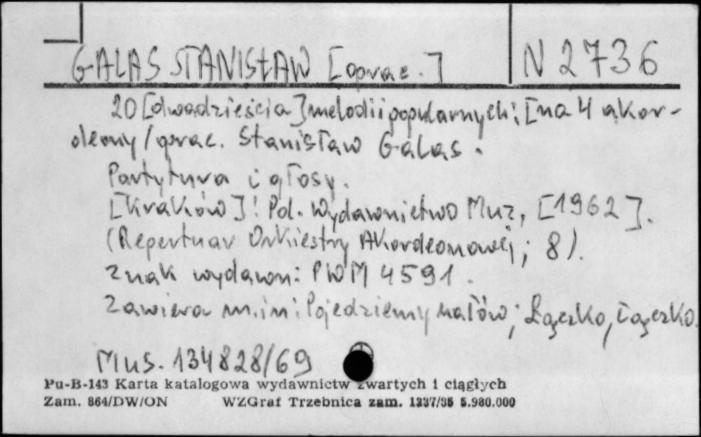 GALAS STANISŁAW [oprac.] N 2736
20 [dwadzieścia] melodii popularnych: [na 4 akor-
deony / oprac. Stanisław Galas.
Partytura i głosy.
[Kraków]: Pol. Wydawnictwo Muz, [1962].
(Repertuar Orkiestry Akordeonowej; 8).
Znak wydawn: PWM 4591.
Zawiera m.in: Pojedziemy na łów; Łączko, łączko.
Mus. 134828/69
Pu-B-143 Karta katalogowa wydawnictw zwartych i ciągłych
Zam. 864/DW/ON WZGraf Trzebnica zam. 1337/85 5.980.000